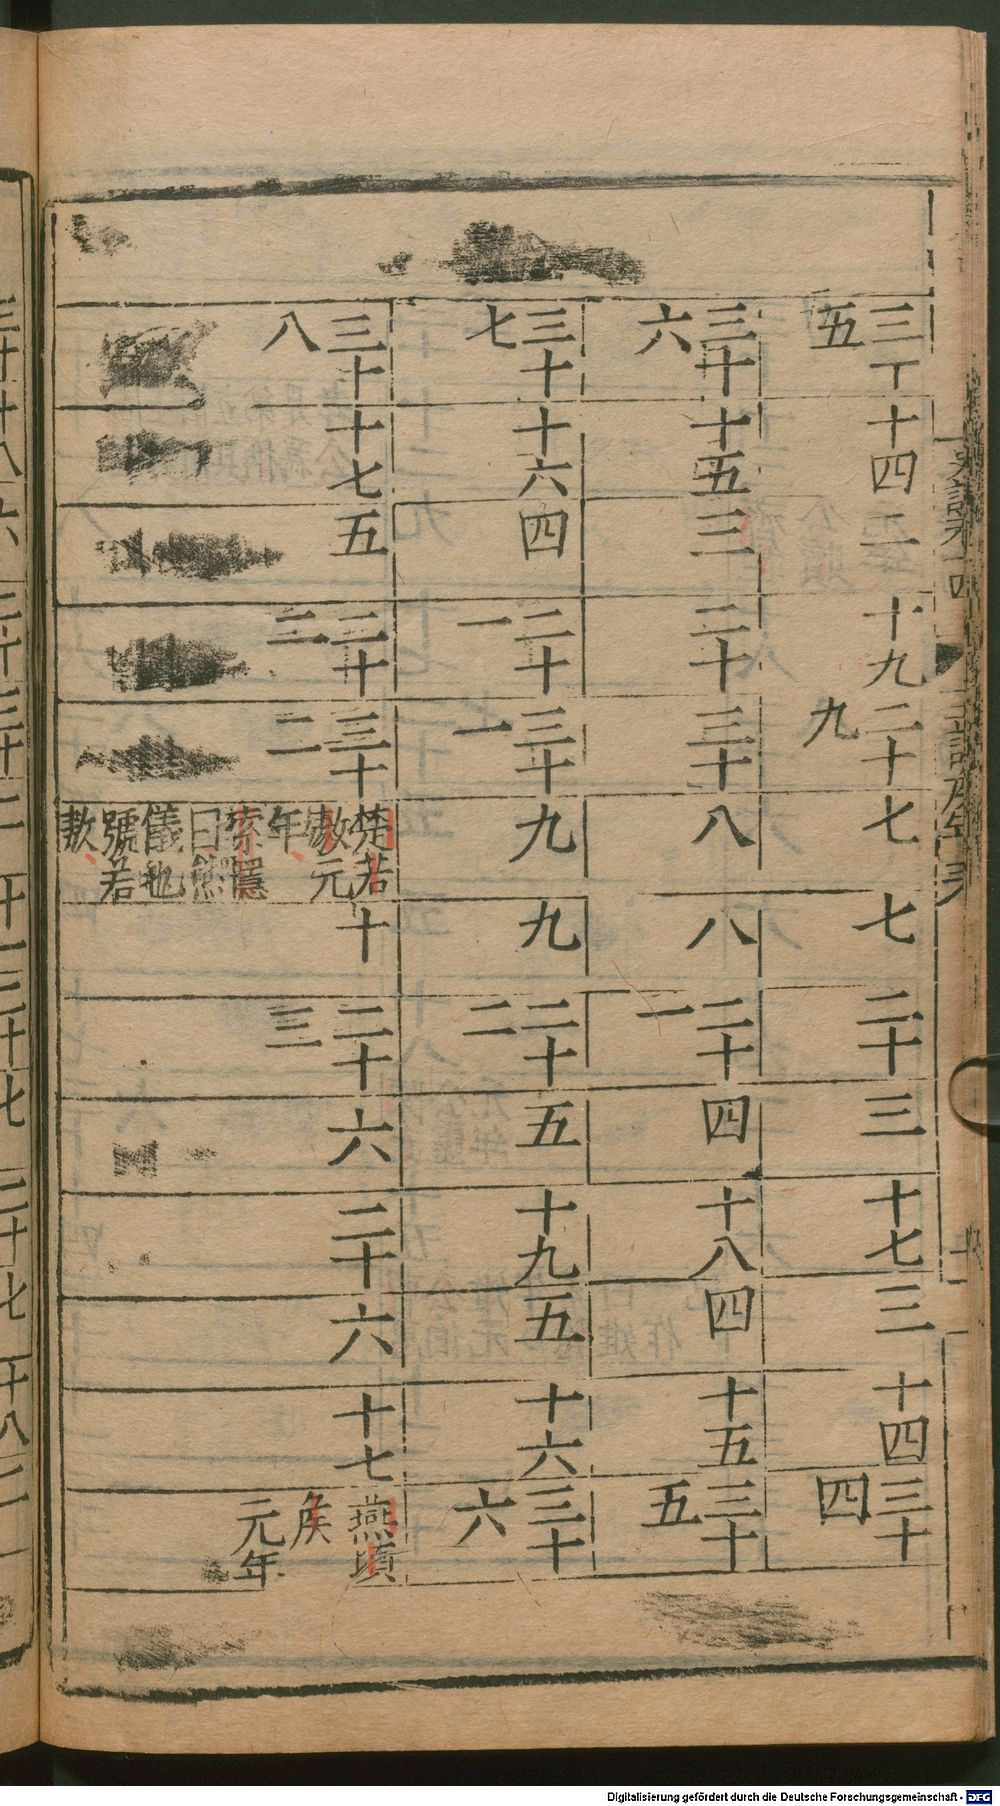 史記卷十四 諸侯年表
三十五 十四 二 十九 二十九 七 七 二十 三 十七 三 十四 三十四
三十六 十五 三 二十 三十 八 八 二十一 四 十八 四 十五 三十五
三十七 十六 四 二十一 三十一 九 九 二十二 五 十九 五 十六 三十六
三十八 十七 五 二十二 三十二 楚若敖元年索隱曰熊儀也號若敖 十 二十三 六 二十 六 十七 燕頃侯元年
Digitalisierung gefördert durch die Deutsche Forschungsgemeinschaft - DFG